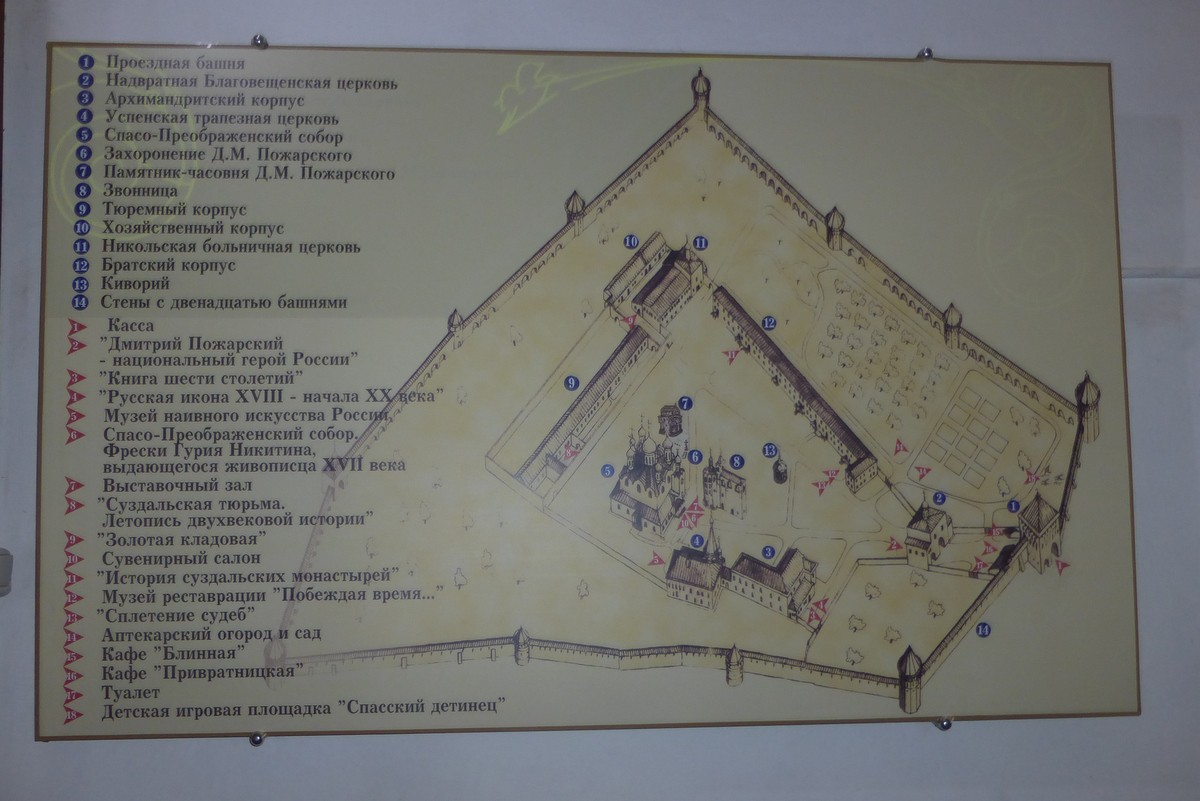 1 Проездная башня
2 Надвратная Благовещенская церковь
3 Архимандритский корпус
4 Успенская трапезная церковь
5 Спасо-Преображенский собор
6 Захоронение Д.М. Пожарского
7 Памятник-часовня Д.М. Пожарского
8 Звонница
9 Тюремный корпус
10 Хозяйственный корпус
11 Никольская больничная церковь
12 Братский корпус
13 Киворий
14 Стены с двенадцатью башнями
1 Касса
2 "Дмитрий Пожарский
- национальный герой России"
3 "Книга шести столетий"
4 "Русская икона XVIII - начала XX века"
5 Музей наивного искусства России
6 Спасо-Преображенский собор.
Фрески Гурия Никитина,
выдающегося живописца XVII века
7 Выставочный зал
8 "Суздальская тюрьма.
Летопись двухвековой истории"
9 "Золотая кладовая"
10 Сувенирный салон
11 "История суздальских монастырей"
12 Музей реставрации "Побеждая время..."
13 "Сплетение судеб"
14 Аптекарский огород и сад
15 Кафе "Блинная"
16 Кафе "Привратницкая"
17 Туалет
18 Детская игровая площадка "Спасский детинец"
10
11
12
9
7
13
6
8
5
2
1
4
3
14